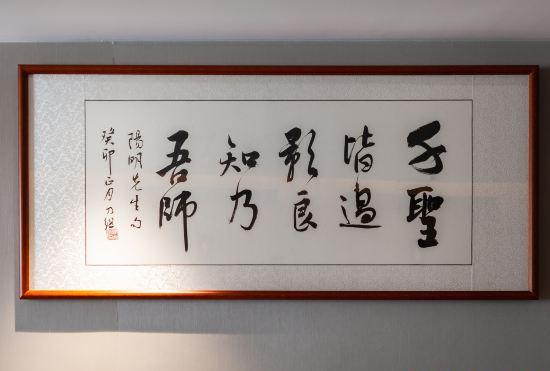 千聖
皆過
影良
知乃
吾師
陽明先生句
癸卯正月